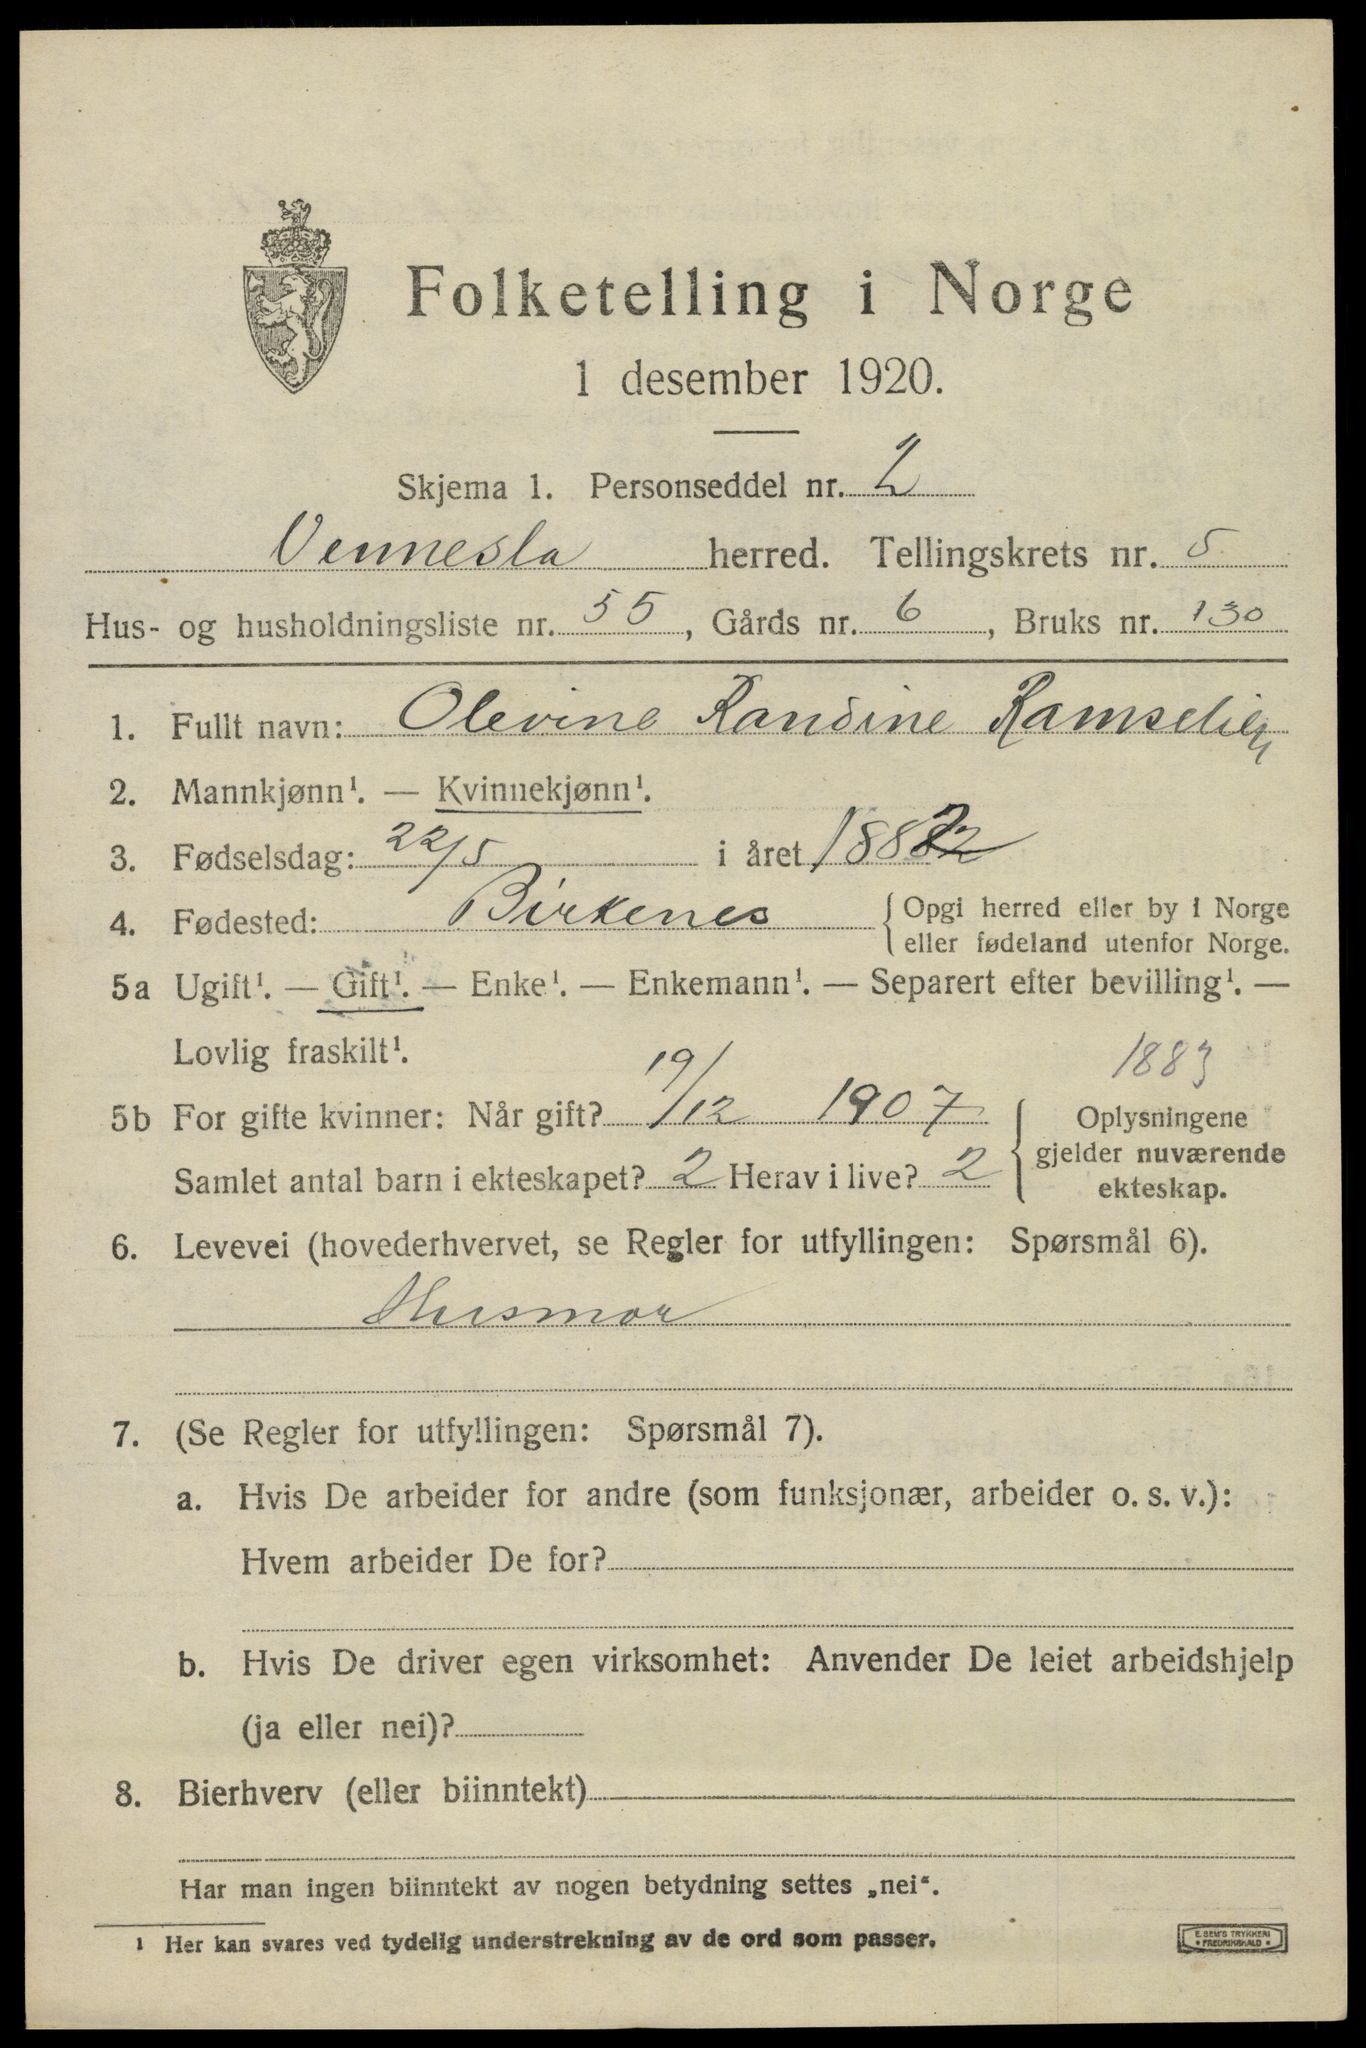 Folketelling i Norge
1 desember 1920.
Skjema 1. Personseddel nr. 2
Vennesla herred. Tellingskrets nr. 5
Hus- og husholdningsliste nr. 55, Gårds nr. 6, Bruks nr. 130
1. Fullt navn: Olevine Randine Ramselien
2. Mannkjønn¹. — Kvinnekjønn¹.
3. Fødselsdag: 22/5 i året 1882
4. Fødested: Birkenes { Opgi herred eller by i Norge
eller fødeland utenfor Norge.
5a Ugift¹. — Gift¹. — Enke¹. — Enkemann¹. — Separert efter bevilling¹. —
Lovlig fraskilt¹.
1883
5b For gifte kvinner: Når gift? 19/12 1907 { Oplysningene
gjelder nuværende
Samlet antal barn i ekteskapet? 2 Herav i live? 2
ekteskap.
6. Levevei (hovederhvervet, se Regler for utfyllingen: Spørsmål 6).
Husmor
7. (Se Regler for utfyllingen: Spørsmål 7).
a. Hvis De arbeider for andre (som funksjonær, arbeider o. s. v.):
Hvem arbeider De for?
b. Hvis De driver egen virksomhet: Anvender De leiet arbeidshjelp
(ja eller nei)?
8. Bierhverv (eller biinntekt)
Har man ingen biinntekt av nogen betydning settes „nei“.
¹ Her kan svares ved tydelig understrekning av de ord som passer.
E. SEM'S TRYKKERI
• FREDRIKSHALD •